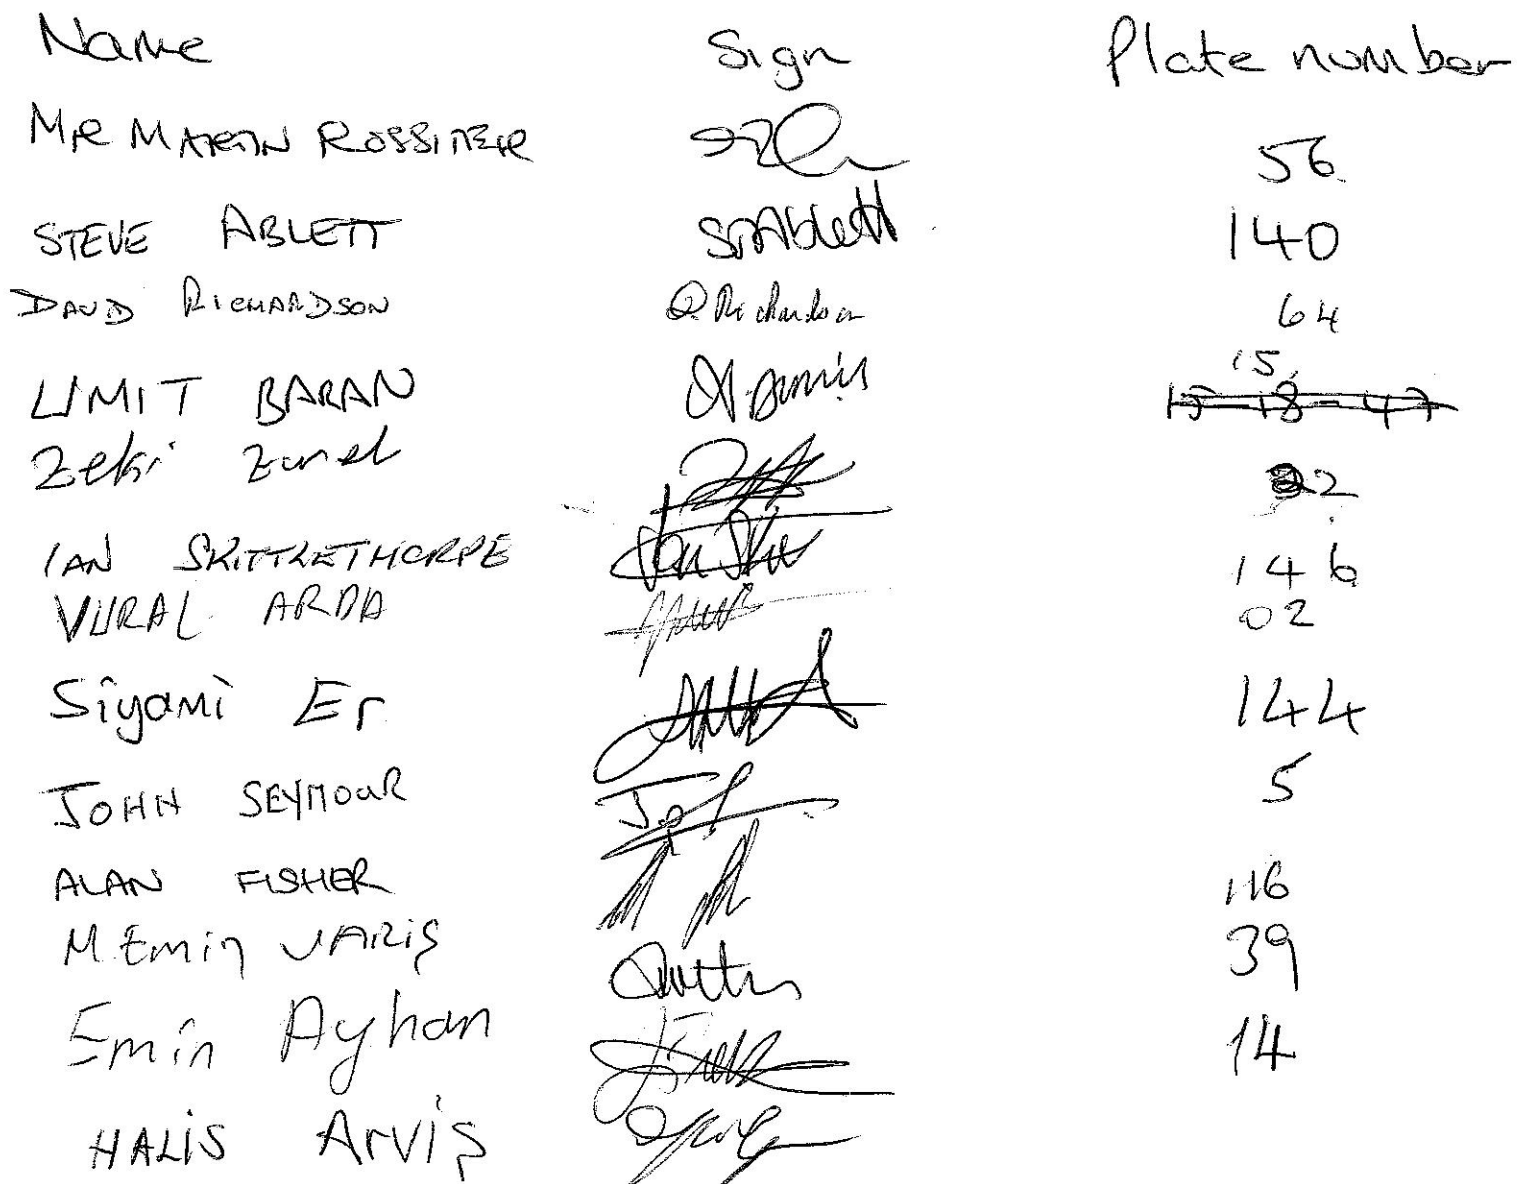 Name Sign Plate number
MR MARTIN ROSSITER 56
STEVE ABLETT SAblett 140
DAVID RICHARDSON DRichardson 64
UMIT BARAN 15
15-18-47
Zeki 22
IAN SKITTLETHORPE 146
VURAL ARDA 02
Siyami Er 144
JOHN SEYMOUR 5
ALAN FISHER 116
M. Emin VARIŞ 39
Emin Ayhan 14
HALIS Arviş